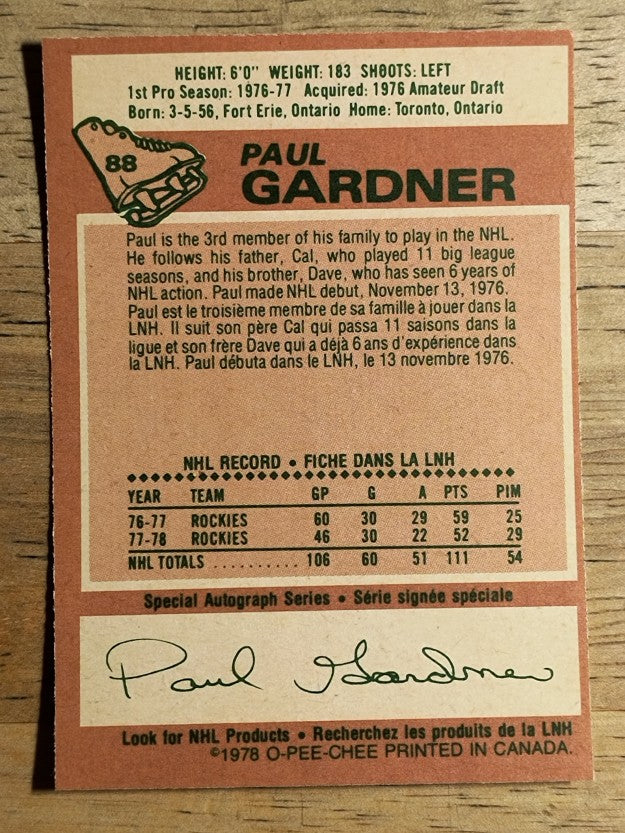 HEIGHT: 6'0" WEIGHT: 183 SHOOTS: LEFT
1st Pro Season: 1976-77 Acquired: 1976 Amateur Draft
Born: 3-5-56, Fort Erie, Ontario Home: Toronto, Ontario
88
PAUL
GARDNER
Paul is the 3rd member of his family to play in the NHL.
He follows his father, Cal, who played 11 big league
seasons, and his brother, Dave, who has seen 6 years of
NHL action. Paul made NHL debut, November 13, 1976.
Paul est le troisième membre de sa famille à jouer dans la
LNH. Il suit son père Cal qui passa 11 saisons dans la
ligue et son frère Dave qui a déjà 6 ans d'expérience dans
la LNH. Paul débuta dans le LNH, le 13 novembre 1976.
NHL RECORD • FICHE DANS LA LNH
YEAR TEAM GP G A PTS PIM
76-77 ROCKIES 60 30 29 59 25
77-78 ROCKIES 46 30 22 52 29
NHL TOTALS .......... 106 60 51 111 54
Special Autograph Series • Série signée spéciale
Paul Gardner
Look for NHL Products • Recherchez les produits de la LNH
©1978 O-PEE-CHEE PRINTED IN CANADA.